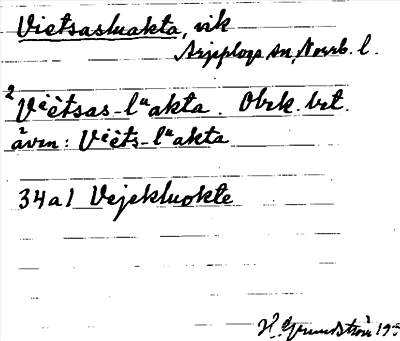 Vietsasluakta, vik
Arjeplogs sn, Norrb. l.
²Viẹ̀tsas-lᵘakta. Obrk. brt.
även: Viẹ̀ts-lᵘakta
34a1 Vejekluokte
H. Grundström 19